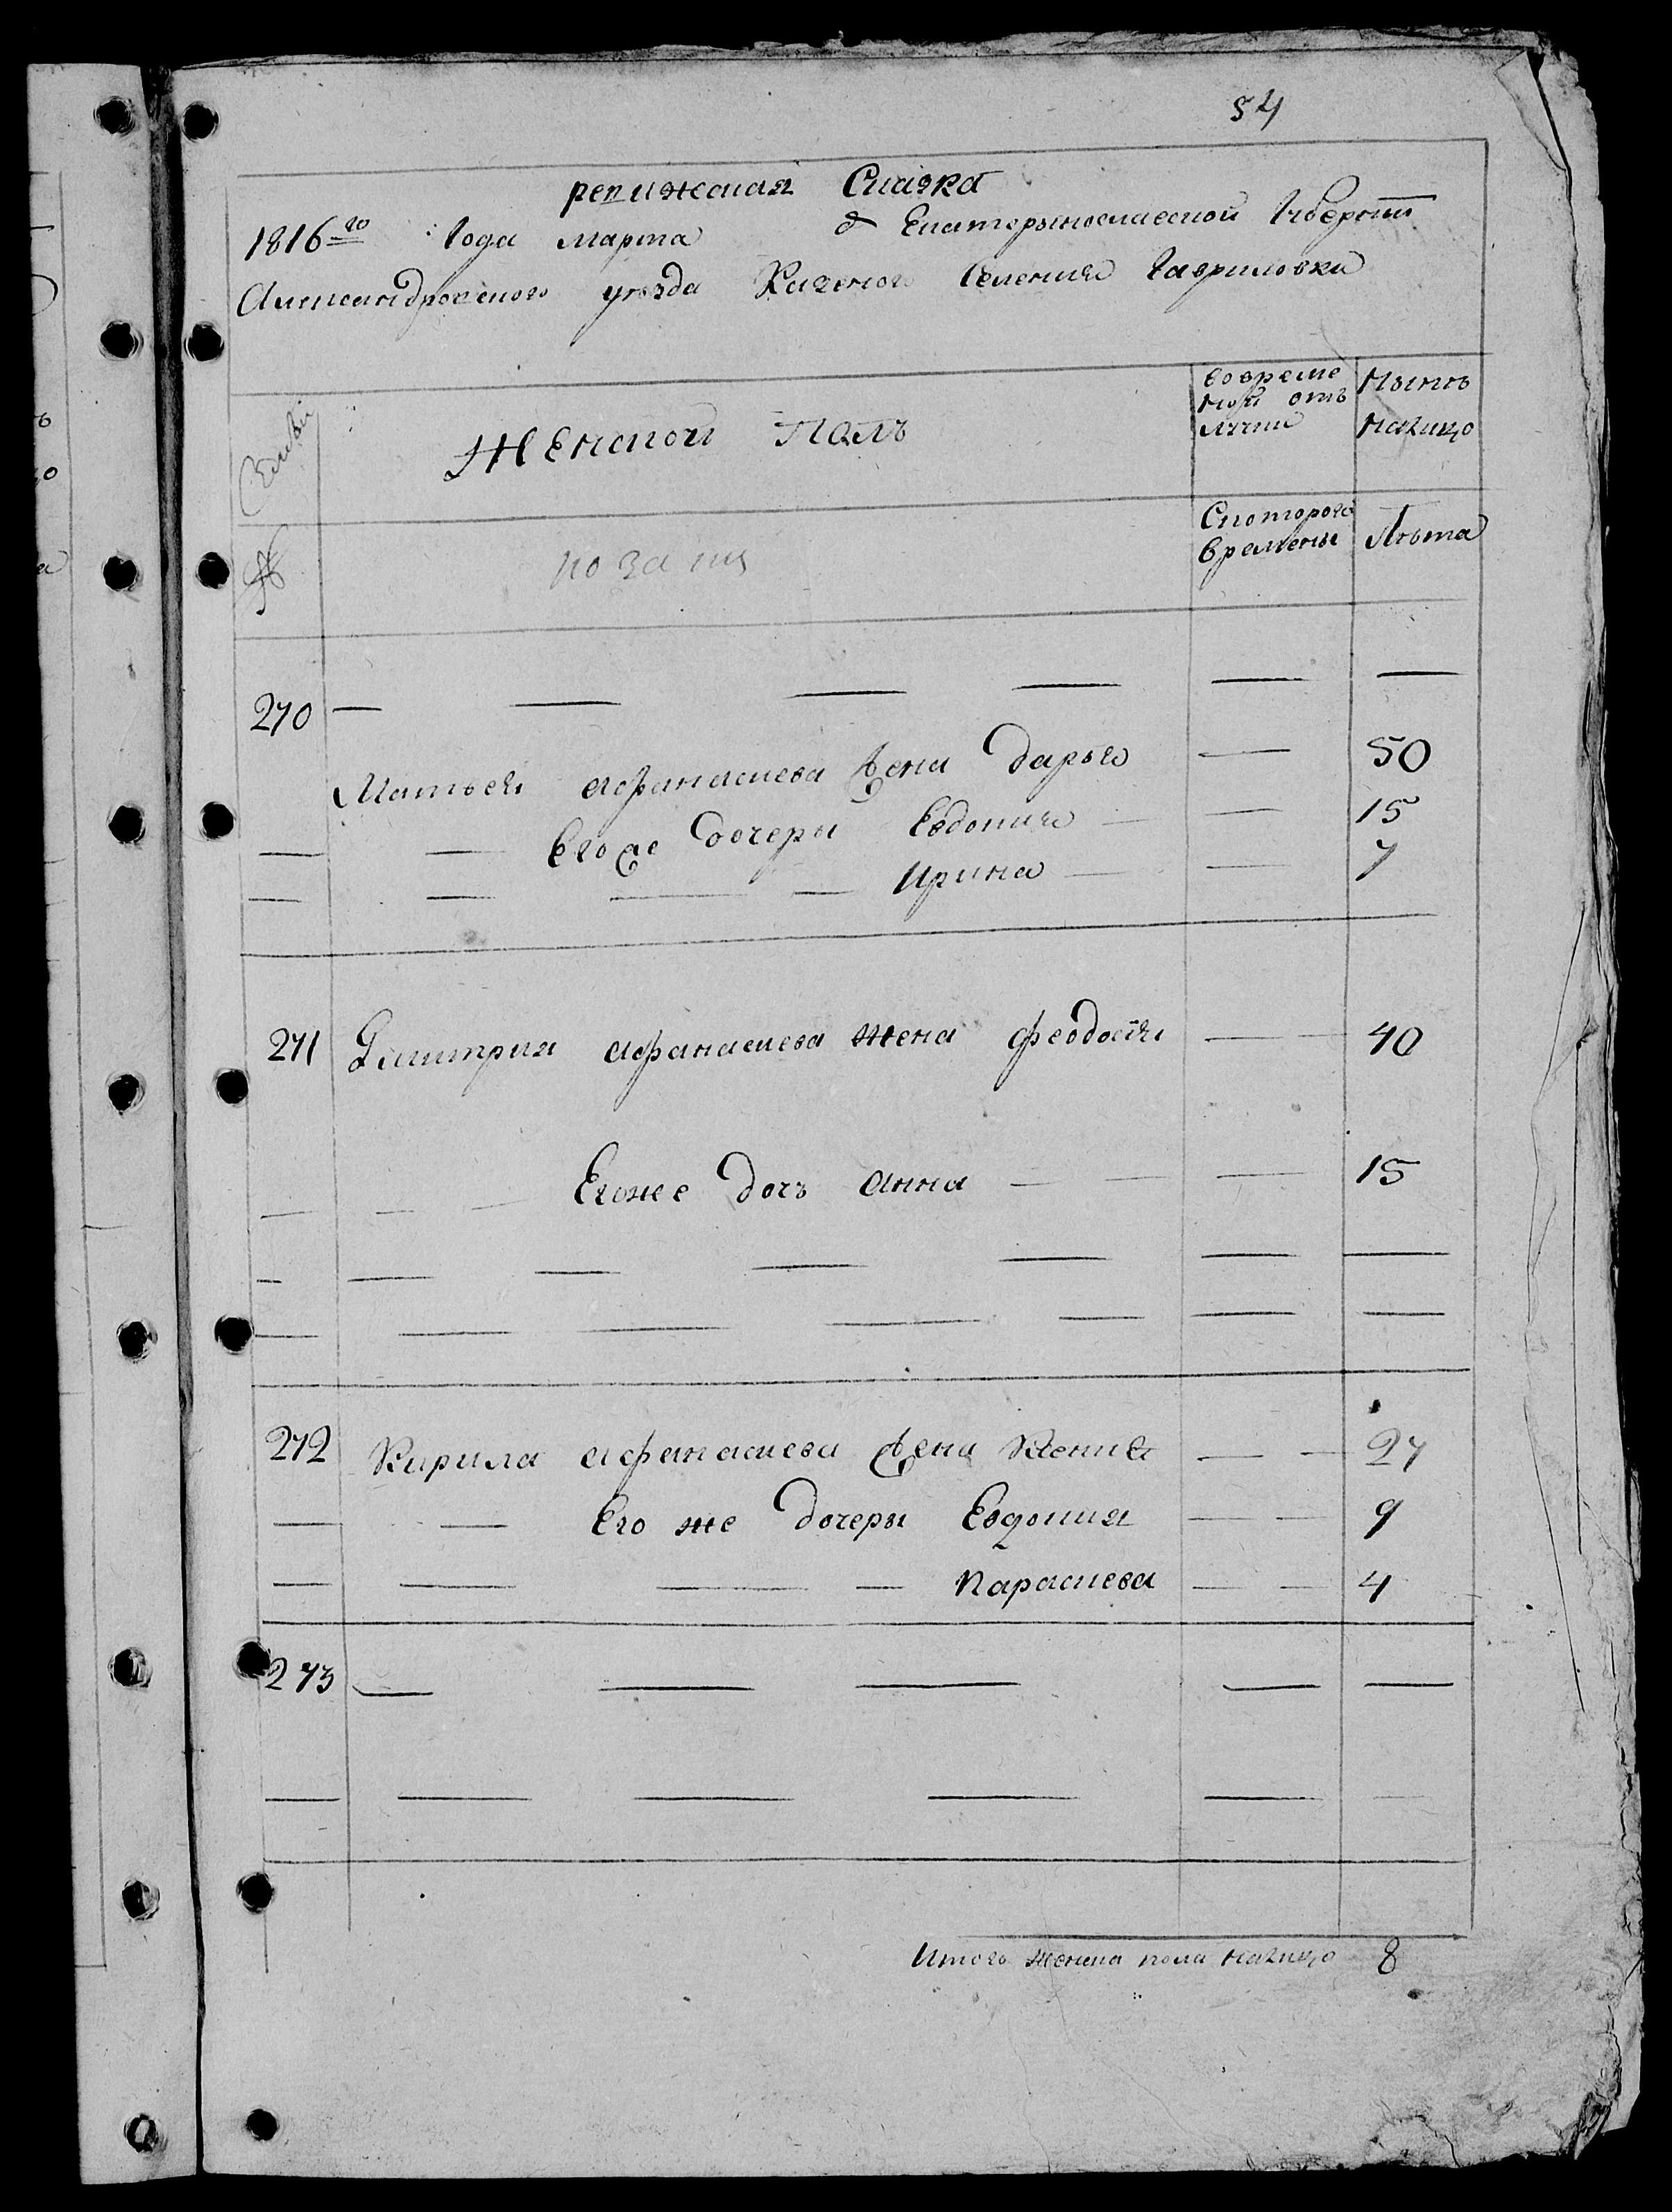 54
ревижская Сказка
1816го Года марта д Екатерынославской Губернии
Александровского уезда Казеного Селения Гавриловки
Семьи Женской Полъ во време ной отъ лучки Нынѣ налицо
№ Скоторого времены Лѣта
270
Матвея афанасиева жена Дарья 50
Его же дочеры Евдокия 15
Ирина 7
271 Димитрия афанасиева жена феодосия 40
Егоже дочъ анна 15
272 Кирила афанасиева жена Ксения 27
Его же дочеры Евдокия 9
Параскева 4
273
Итого женска пола налицо 8